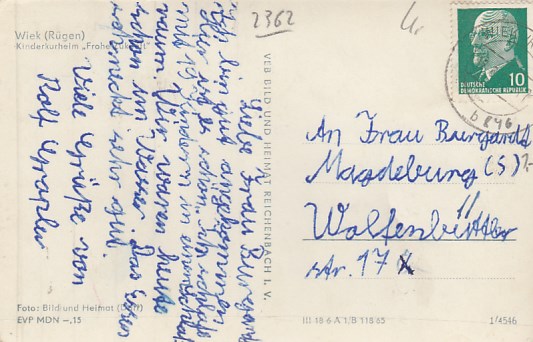 Wiek (Rügen)
Kinderkurheim „Frohe Zukunft"
2362
Liebe Frau Burgardt
Ich bin gut angekommen
Hier ist es schön. Ich schlafe
mit 19 Kindern in einem Schlaf
raum. Wir waren heute
schon im Wasser. Das Essen
schmeckt sehr gut.
Viele Grüße von
Rolf
VEB BILD UND HEIMAT REICHENBACH I. V.
DEUTSCHE
DEMOKRATISCHE REPUBLIK
10
An Frau Burgardt
Magdeburg (S)
Wolfenbüttler
str. 17
Foto: Bild und Heimat
EVP MDN –,15
III 18 6 A 1/B 118/65
1/4546